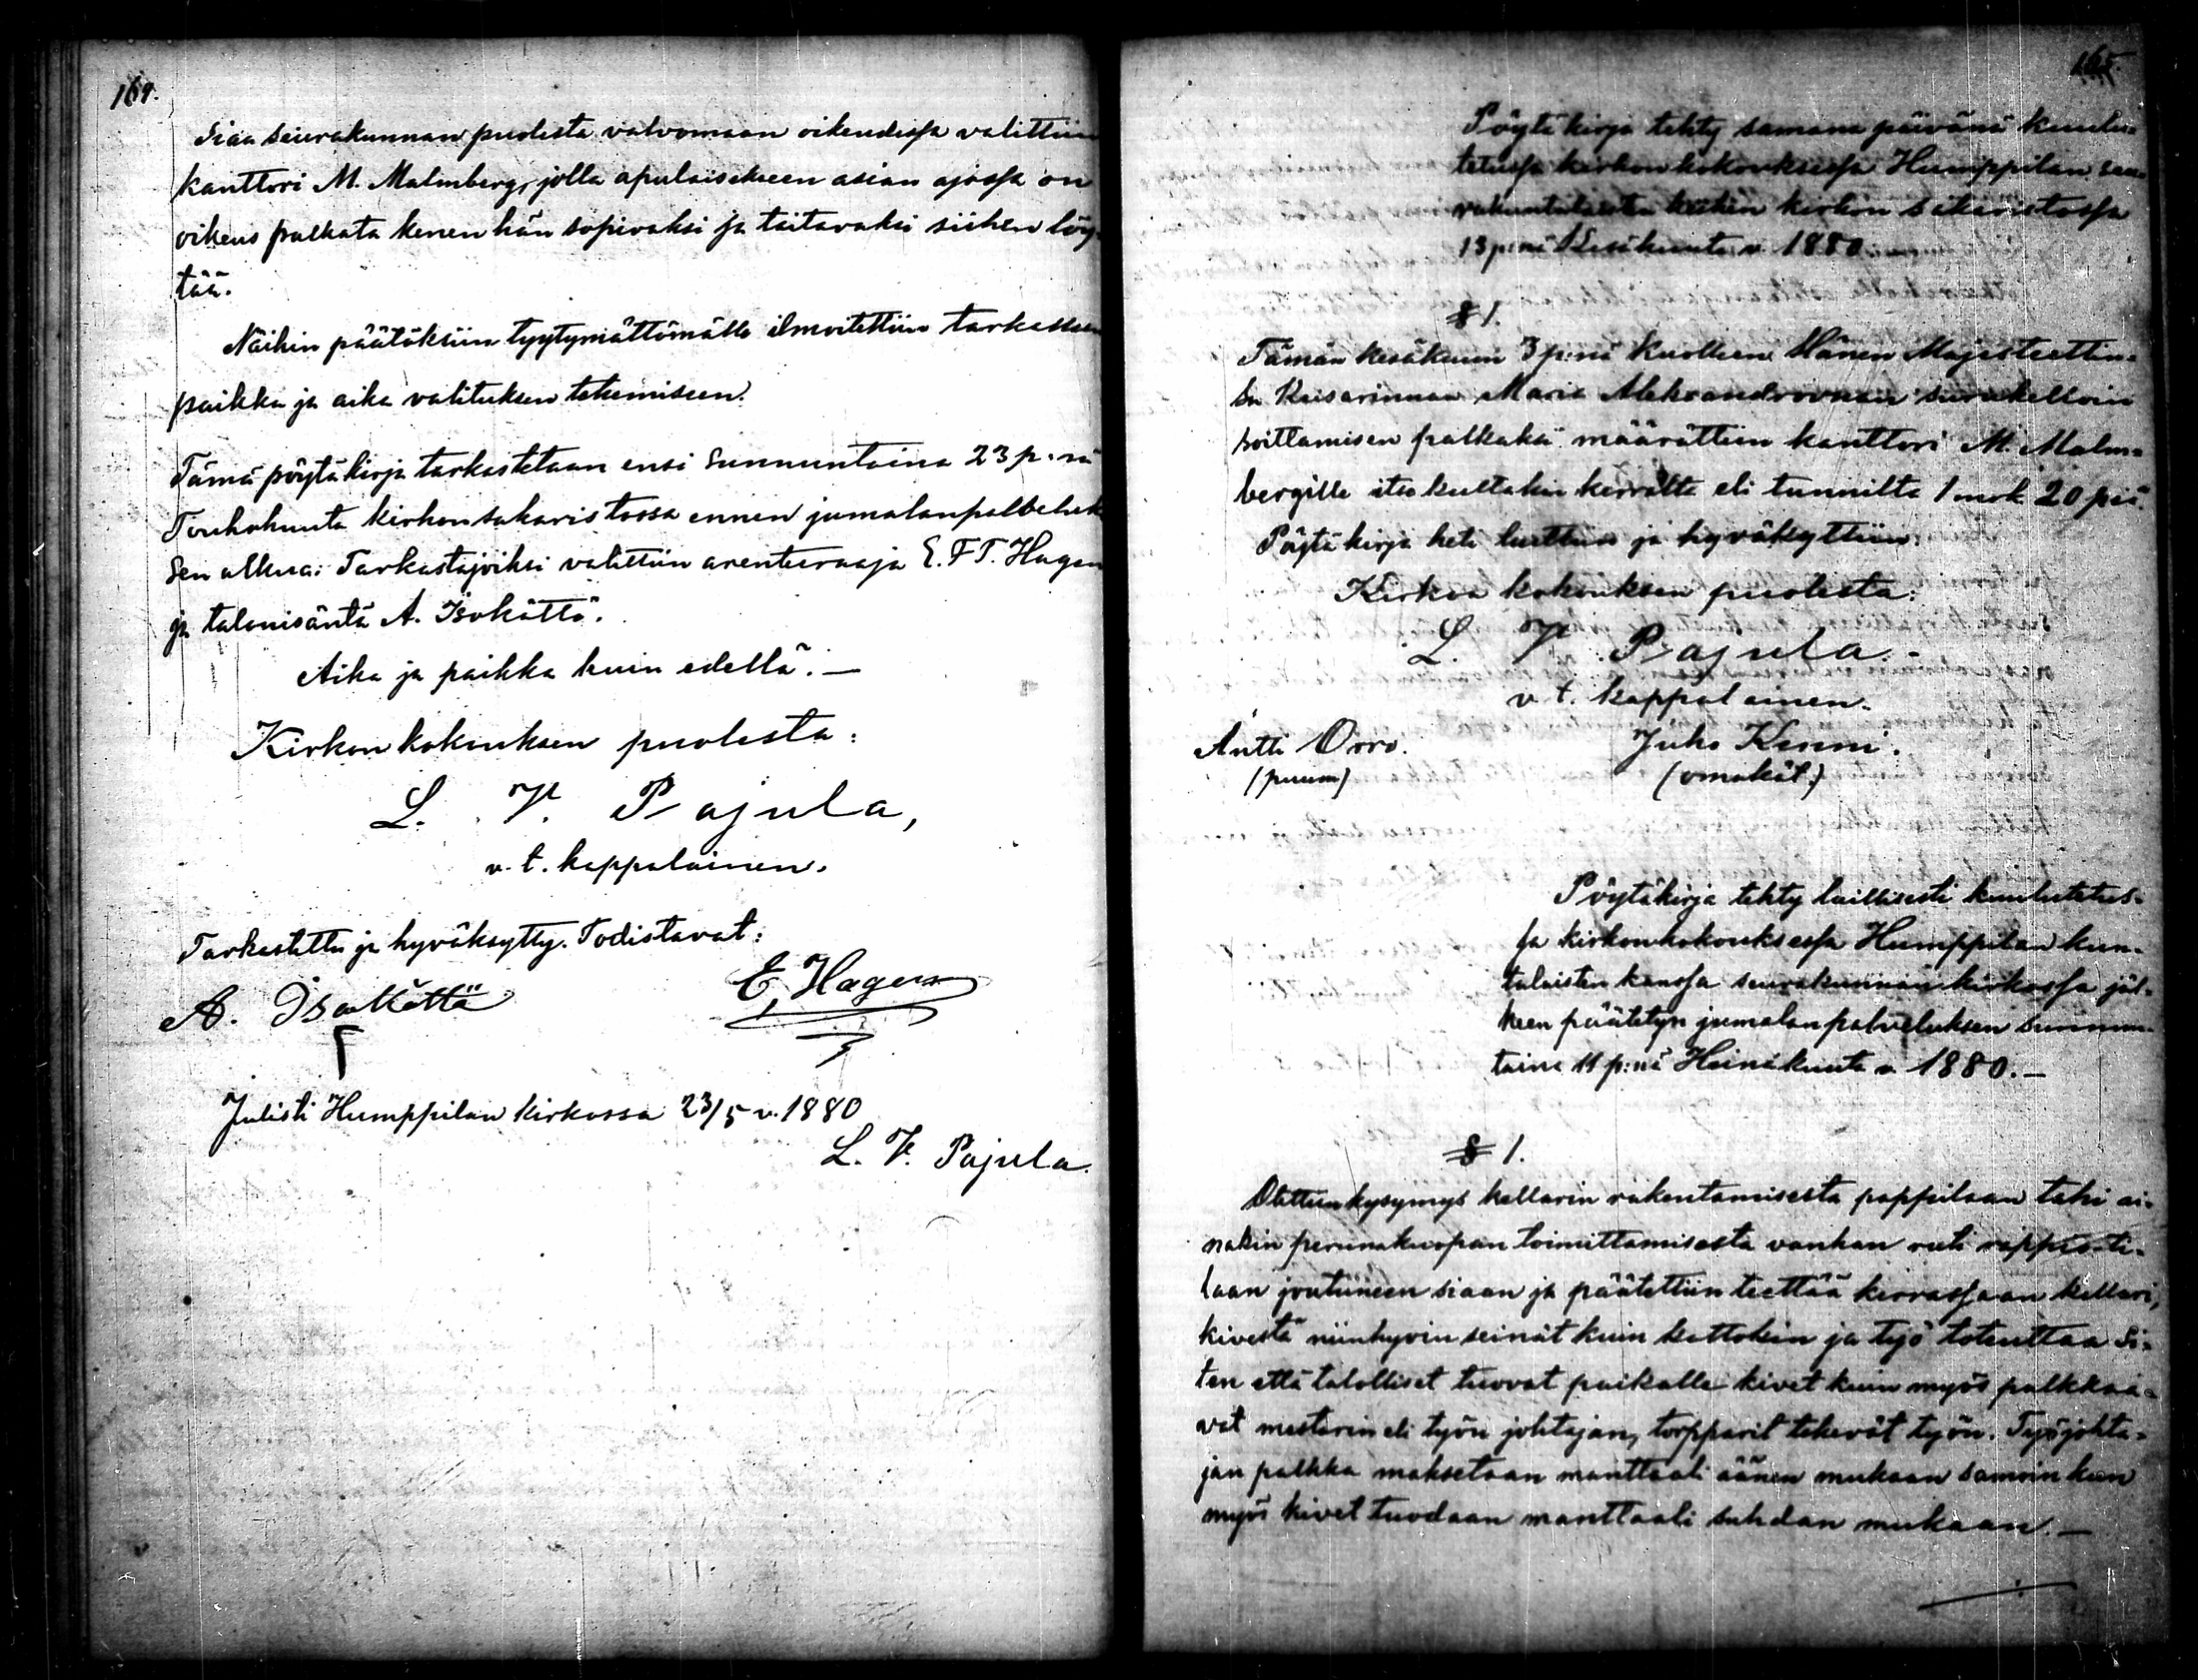 164.
siaa seurakunnan puolesta valvomaan oikeudessa valittiin
kanttori M. Malmberg, jolla apulaisekseen asian ajossa on
oikeus palkata kenen hän sopivaksi ja taitavaksi siihen löy-
tää.
Näihin päätöksiin tyytymättömälle ilmoitettiin tarkasteen
paikka ja aika valituksen tekemiseen.
Tämä pöytäkirja tarkastetaan ensi Sunnuntaina 23 p:nä
Toukokuuta kirkon sakaristossa ennen jumalanpalveluk
sen alkua. Tarkastajoiksi valittiin arenteeraaja E. F. T. Hagen
ja talonisäntä A. Isokättö.
Aika ja paikka kuin edellä. —
Kirkon kokouksen puolesta:
L. V. Pajula,
v. t. kappalainen.
Tarkastettu ja hyväksytty. Todistavat:
A. Isokättä
E. Hagen
Julisti Humppilan kirkossa 23/5 v. 1880
L. V. Pajula.
165.
Pöytäkirja tehty samana päivänä kuulu-
tetussa kirkonkokouksessa Humppilan seu-
rakuntalaisten kesken kirkon sakaristossa
13 p:nä Kesäkuuta v. 1880.
§ 1.
Tämän kesäkuun 3 p:nä kuolleen Hänen Majesteettin-
sa Keisarinnan Maria Aleksandrovnan surukelloin
soittamisen palkaksi määrättiin kanttori M. Malm-
bergille itse kultakin kerralta eli tunnilta 1 mrk 20 pii.
Pöytäkirja heti luettiin ja hyväksyttiin.
Kirkon kokouksen puolesta:
L. V. Pajula.
v. t. kappalainen.
Antti Orro.
(puum)
Juho Kinni.
(omakät.)
Pöytäkirja tehty laillisesti kuulutetus-
sa kirkonkokouksessa Humppilan kun-
talaisten kanssa seurakunnan kirkossa jäl-
keen päätetyn jumalanpalveluksen sunnun-
taina 11 p:nä Heinäkuuta v. 1880. —
§ 1.
Otettiin kysymys kellarin rakentamisesta pappilaan tahi ai-
nakin perunakuopan toimittamisesta vanhan rappio-ti-
laan joutuneen siaan ja päätettiin teettää kerrassaan kellari,
kivestä niinhyvin seinät kuin kattokin ja työ toteuttaa si-
ten että talolliset tuovat paikalle kivet kuin myös palkkaa-
vat mestarin eli työn johtajan, torpparit tekevät työn. Työjohta-
jan palkka maksetaan manttaali äänen mukaan samoin kuin
myös kivet tuodaan manttaali suhdan mukaan. —